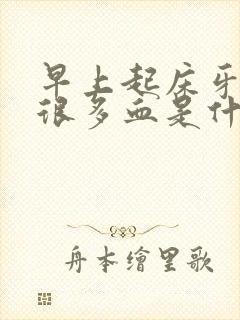 早上起床牙
很多血是什
舟本繪里歌